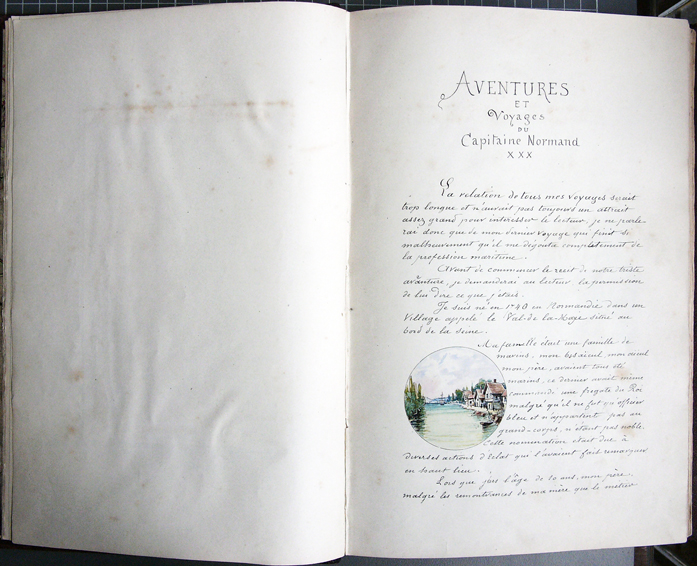 AVENTURES
ET
Voyages
DU
Capitaine Normand
XXX
La relation de tous mes voyages serait
trop longue et n'aurait pas toujours un attrait
assez grand pour intéresser le lecteur, je ne parle-
rai donc que de mon dernier voyage qui finit si
malheureusement qu'il me dégoûta complètement de
la profession maritime.
Avant de commencer le récit de notre triste
avanture, je demanderai au lecteur la permission
de lui dire ce que j'étais.
Je suis né en 1740 en Normandie dans un
Village appelé le Val-de-la-Haye situé au
bord de la seine.
Ma famille était une famille de
marins, mon bisaïeul mon aieul
mon père, avaient tous été
marins, ce dernier avait même
commandé une frégate du Roi
malgré qu'il ne fut qu'officier
bleu et n'appartint pas au
grand-corps, n'étant pas noble.
Cette nomination était due à
diverses actions d'éclat qui l'avaient fait remarquer
en haut lieu.
Lors que j'eus l'âge de 10 ans, mon père,
malgré les remontrances de ma mère que le métier